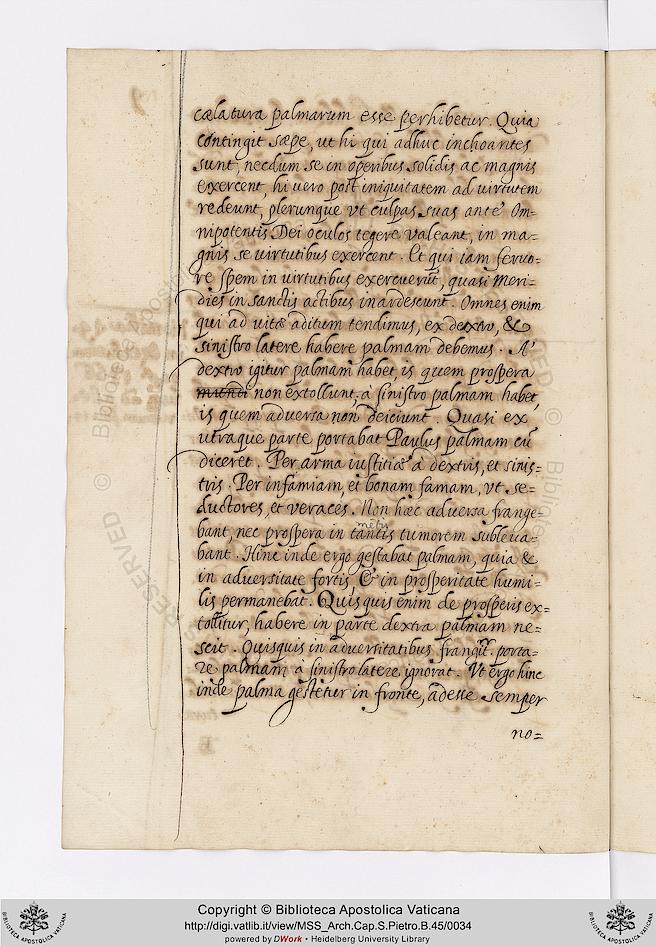 cælatura palmarum esse perhibetur. Quia
contingit sæpe, ut hi qui adhuc inchoantes
sunt, necdum se in operibus solidis ac magnis
exercent, hi vero post iniquitatem ad virtutem
redeunt, plerunque ut culpas suas ante Om=
nipotentis Dei oculos tegere valeant, in ma=
gnis se virtutibus exercent. Et qui iam fervo=
re spem in virtutibus exercuerūt, quasi Meri=
dies in sanctis actibus inardescunt. Omnes enim
qui ad vitæ aditum tendimus, ex dextro, &
sinistro latere habere palmam debemus. A'
dextro igitur palmam habet, is quem prospera
mundi non extollunt, à sinistro palmam habet,
is quem adversa non deiciunt. Quasi ex
utraque parte portabat Paulus palmam cū
diceret. Per arma iustitiæ a dextris, et sinis=
tris. Per infamiam, et bonam famam, ut se=
ductores, et veraces. Non hæc adversa frange=
bant, nec prospera in tantis tumorem subleva=
bant. Hinc inde ergo gestabat palmam, quia &
in adversitate fortis, & in prosperitate humi=
lis permanebat. Quisquis enim de prosperis ex=
tollitur, habere in parte dextra palmam ne=
scit. Quisquis in adversitatibus frangit̃. porta=
re palmam à sinistro latere ignorat. Ut ergo hinc
inde palma gestetur in fronte, adesse semper
no=
Copyright © Biblioteca Apostolica Vaticana
http://digi.vatlib.it/view/MSS_Arch.Cap.S.Pietro.B.45/0034
powered by DWork • Heidelberg University Library